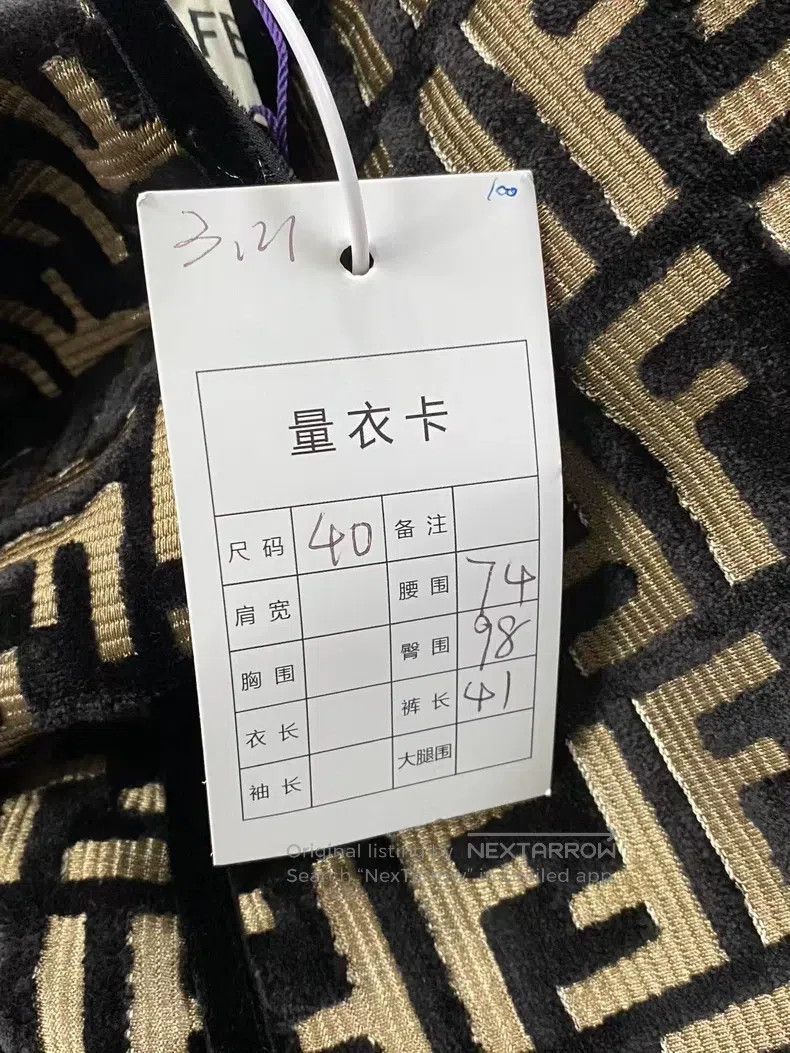 FE
100
3.21
量衣卡
尺码 40 备注
肩宽 腰围 74
胸围 臀围 98
衣长 裤长 41
袖长 大腿围
Original listing by NEXTARROW